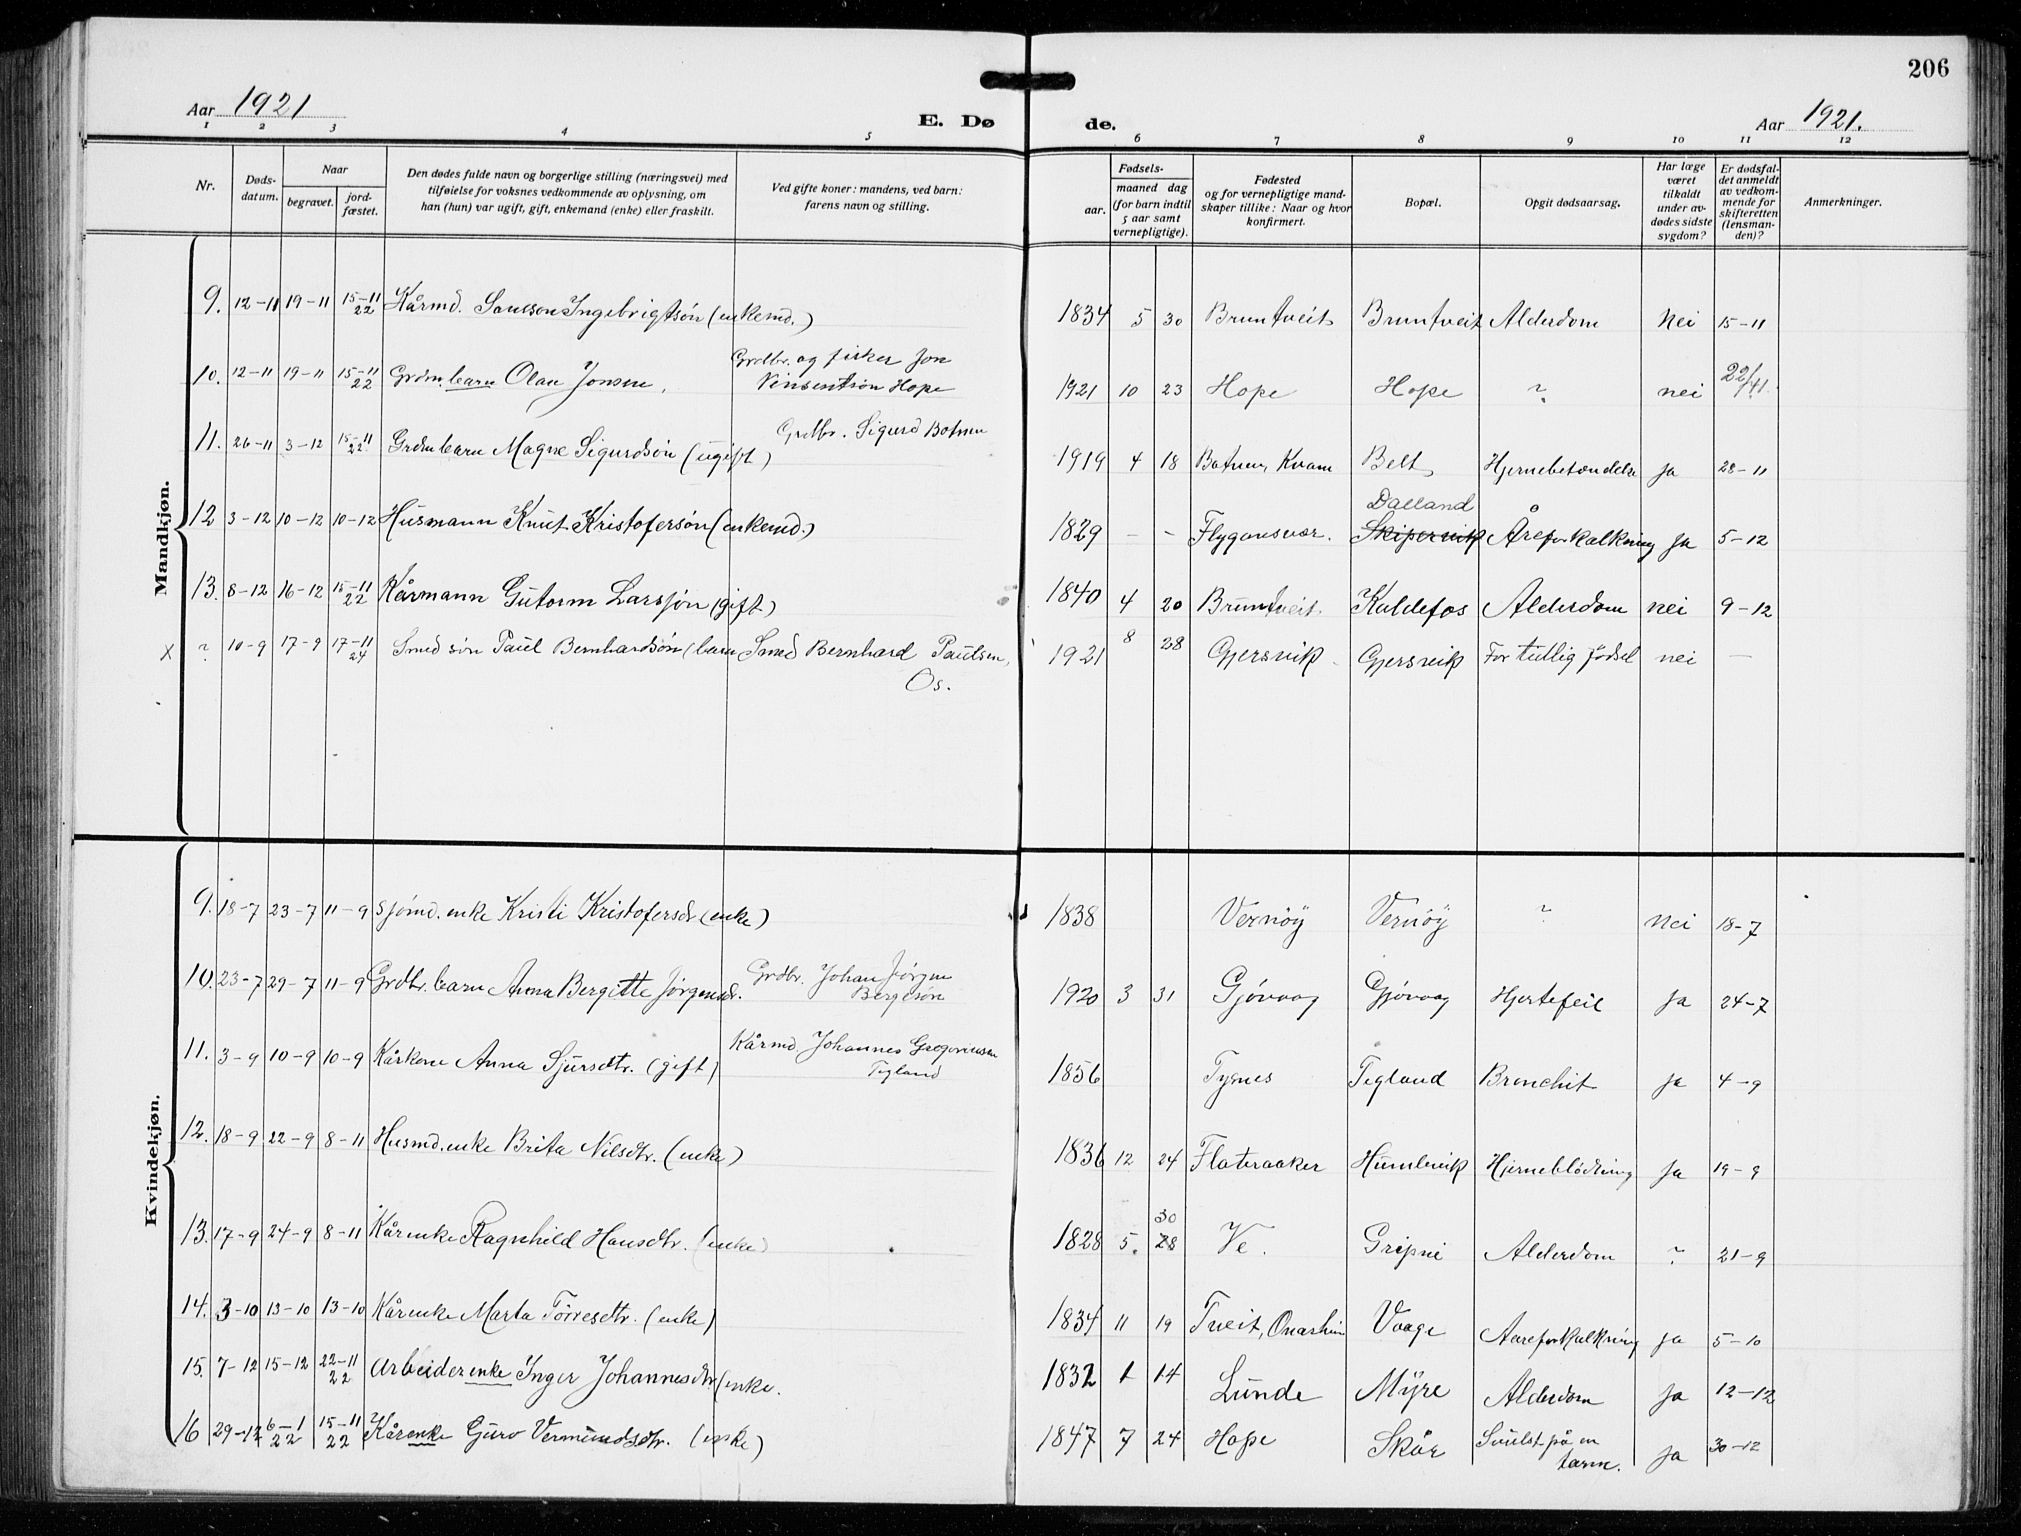 206
Aar 1921
E. Dø de.
Aar 1921.
1 2 3 4 5 6 7 8 9 10 11 12
Nr.
Døds-datum.
Naar
begravet.
jord-fæstet.
Den dødes fulde navn og borgerlige stilling (næringsvei) med
tilføielse for voksnes vedkommende av oplysning, om
han (hun) var ugift, gift, enkemand (enke) eller fraskilt.
Ved gifte koner: mandens, ved barn:
farens navn og stilling.
Fødsels-
aar.
maaned dag
(for barn indtil
5 aar samt
vernepligtige).
Fødested
og for vernepligtige mand-
skaper tillike: Naar og hvor
konfirmert.
Bopæl.
Opgit dødsaarsag.
Har læge
været
tilkaldt
under av-
dødes sidste
sygdom?
Er dødsfal-
det anmeldt
av vedkom-
mende for
skifteretten
(lensman-
den)?
Anmerkninger.
Mandkjøn.
9. 12-11 19-11 15-11 22 Kårmd. Samson Ingebrigtsøn (enkemd.) 1834 5 30 Bruntveit Bruntveit Alderdom Nei 15-11
10. 12-11 19-11 15-11 22 Grdm. barn Olav Jonsen, Grdbr. og fisker Jon
Vinsentsøn Hope 1921 10 23 Hope Hope ? nei 22/11.
11. 26-11 3-12 15-11 22 Grdm barn Magne Sigurdsøn (ugift) Grdbr. Sigurd Botnen 1919 4 18 Botnen, Kvam Belt Hjernebetændelse ja 28-11
12 3-12 10-12 10-12 Husmann Knut Kristofersøn (enkemd.) 1829 - - Flygansvær. Dalland
Skipervik Åreforkalkning ja 5-12
13. 8-12 16-12 15-11 22 Kårmann Gutorm Larssøn (gift) 1840 4 20 Bruntveit Kaldefos Alderdom nei 9-12
x ? 10-9 17-9 17-11 24 Smed søn Paul Bernhardsøn (barn Smed Bernhard Paulsen,
Os. 1921 8 28 Gjersvik Gjersvik For tidlig fødsel nei —
Kvindekjøn.
9. 18-7 23-7 11-9 Sjømd. enke Kristi Kristofersdr (enke) 1838 Vernöy Vernöy ? Nei 18-7
10. 23-7 29-7 11-9 Grdbr. barn Anna Bergitte Jørgensdr. Grdbr. Johan Jørgen
Bergesøn 1920 3 31 Gjövaag Gjövaag Hjertefeil ja 24-7
11. 3-9 10-9 10-9 Kårkone Anna Sjursdtr. (gift) Kårmd. Johannes Gregoriussen
Tegland 1856 Tysnes Tegland Bronchit ja 4-9
12. 18-9 22-9 8-11 Husmd. enke Brita Nilsdtr. (enke) 1836 12 24 Flateraaker Humlevik Hjerneblödning ja 19-9
13. 17-9 24-9 8-11 Kårenke Ragnhild Hansdtr. (enke) 1828 5. 30
28 Ve. Gripne Alderdom ? 21-9
14. 3-10 13-10 13-10 Kårenke Marta Törresdtr. (enke) 1834 11 19 Tveit, Onarheim Vaage Aareforkalkning ja 5-10
15. 7-12 15-12 22-11 22 Arbeiderenke Inger Johannesdtr (enke. 1832 1 14 Lunde Myre Alderdom ja 12-12
16 29-12 6-1 22 15-11 22 Kårenke Guro Vermundsdtr. (enke) 1847 7 24 Hope Skår Svulst på en
tarm. ja 30-12